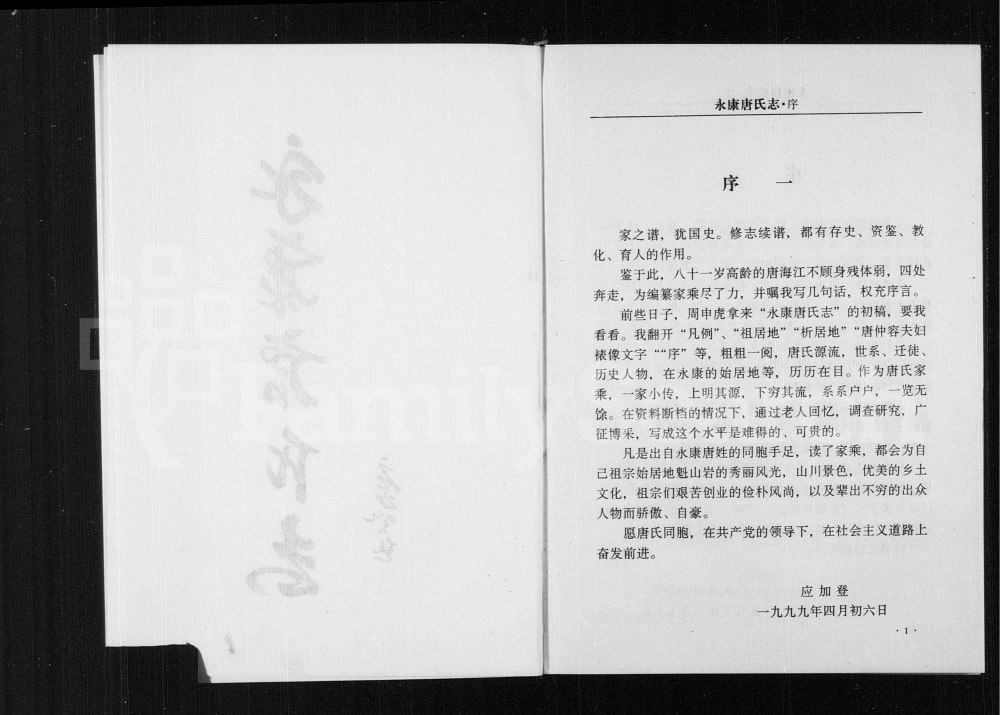 永康唐氏志·序
序 一
家之谱，犹国史。修志续谱，都有存史、资鉴、教
化、育人的作用。
鉴于此，八十一岁高龄的唐海江不顾身残体弱，四处
奔走，为编纂家乘尽了力，并嘱我写几句话，权充序言。
前些日子，周申虎拿来“永康唐氏志”的初稿，要我
看看。我翻开“凡例”、“祖居地”“析居地”“唐仲容夫妇
裱像文字”“序”等，粗粗一阅，唐氏源流，世系、迁徒、
历史人物，在永康的始居地等，历历在目。作为唐氏家
乘，一家小传，上明其源，下穷其流，系系户户，一览无
馀。在资料断档的情况下，通过老人回忆，调查研究，广
征博采，写成这个水平是难得的、可贵的。
凡是出自永康唐姓的同胞手足，读了家乘，都会为自
己祖宗始居地魁山岩的秀丽风光，山川景色，优美的乡土
文化，祖宗们艰苦创业的俭朴风尚，以及辈出不穷的出众
人物而骄傲、自豪。
愿唐氏同胞，在共产党的领导下，在社会主义道路上
奋发前进。
应加登
一九九九年四月初六日
·1·